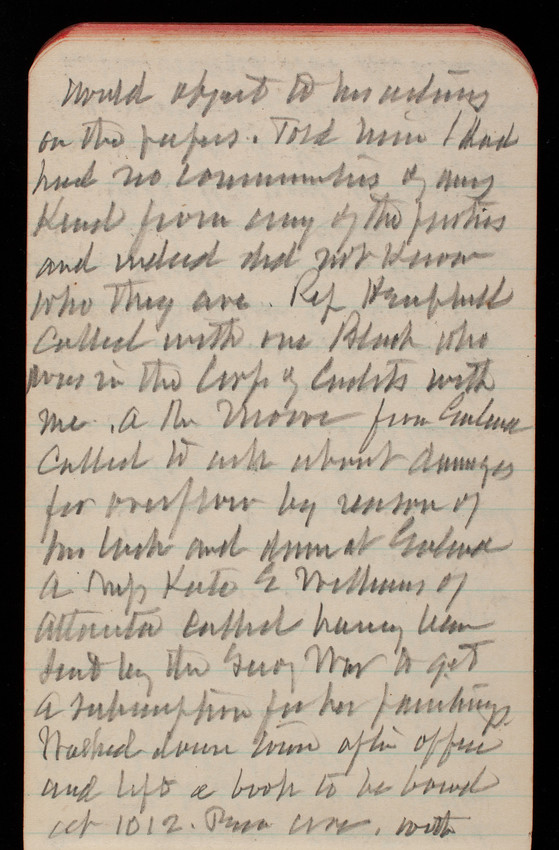 would object to his acting
on the papers. Told him I had
had no communication of any
Kind from any of the parties
and indeed did not Know
who they are. Rep Hemphill
Called with one Black who
was in the Corps of Cadets with
me. A Mr Moore from
Called to ask about damages
for overflow by reason of
the lock and dam at
A Miss Kate E Williams of
Atlanta called having been
Sent by the Secy War to get
A subscription for her paintings.
Walked down town after office
and left a book to be bound
at 1012. Penn Ave. with